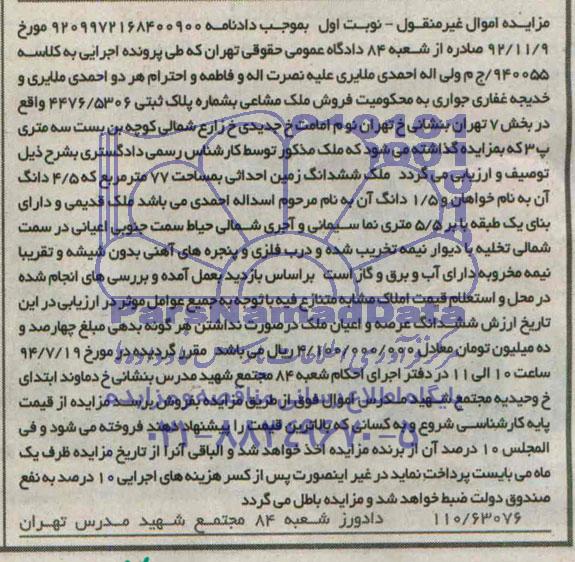 مزایده اموال غیرمنقول - نوبت اول بموجب دادنامه ۹۲۰۹۹۷۲۱۶۸۴۰۰۹۰۰ مورخ
۹۲/۱۱/۹ صادره از شعبه ۸۴ دادگاه عمومی حقوقی تهران که طی پرونده اجرایی به کلاسه
۹۴۰۰۵۵/ج م ولی اله احمدی ملایری علیه نصرت اله و فاطمه و احترام هر دو احمدی ملایری و
خدیجه غفاری جواری به محکومیت فروش ملک مشاعی بشماره پلاک ثبتی ۴۴۷۶/۵۳۰۶ واقع
در بخش ۷ تهران بنشانی خ تهران نو م امامت خ جدیدی خ زارع شمالی کوچه بن بست سه متری
پ ۳ که بمزایده گذاشته می شود که ملک مذکور توسط کارشناس رسمی دادگستری بشرح ذیل
توصیف و ارزیابی می گردد ملک ششدانگ زمین احداثی بمساحت ۷۷ مترمربع که ۴/۵ دانگ
آن به نام خواهان و ۱/۵ دانگ آن به نام مرحوم اسداله احمدی می باشد ملک قدیمی و دارای
بنای یک طبقه با بر ۵/۵ متری نما سیمانی و آجری شمالی حیاط سمت جنوبی اعیانی در سمت
شمالی تخلیه با دیوار نیمه تخریب شده و درب فلزی و پنجره های آهنی بدون شیشه و تقریبا
نیمه مخروبه دارای آب و برق و گاز است براساس بازدید بعمل آمده و بررسی های انجام شده
در محل و استعلام قیمت املاک مشابه متنازع فیه با توجه به جمیع عوامل موثر در ارزیابی در این
تاریخ ارزش ششدانگ عرصه و اعیان ملک در صورت نداشتن هر گونه بدهی مبلغ چهارصد و
ده میلیون تومان معادل ۴/۱۰۰/۰۰۰/۰۰۰ ریال می باشد مقرر گردیده در مورخ ۹۴/۷/۱۹
ساعت ۱۰ الی ۱۱ در دفتر اجرای احکام شعبه ۸۴ مجتمع شهید مدرس بنشانی خ دماوند ابتدای
خ وحیدیه مجتمع شهید مدرس اموال فوق از طریق مزایده بفروش برسد مزایده از قیمت
پایه کارشناسی شروع و به کسانی که بالاترین قیمت را پیشنهاد دهند فروخته می شود و فی
المجلس ۱۰ درصد آن از برنده مزایده اخذ خواهد شد و الباقی آنرا از تاریخ مزایده ظرف یک
ماه می بایست پرداخت نماید در غیر اینصورت پس از کسر هزینه های اجرایی ۱۰ درصد به نفع
صندوق دولت ضبط خواهد شد و مزایده باطل می گردد
۱۱۰/۶۳۰۷۶ دادورز شعبه ۸۴ مجتمع شهید مدرس تهران
ParsNamadData
پایگاه اطلاع رسانی مناقصه و مزایده
۰۲۱-۸۸۳۴۹۶۷۰-۵